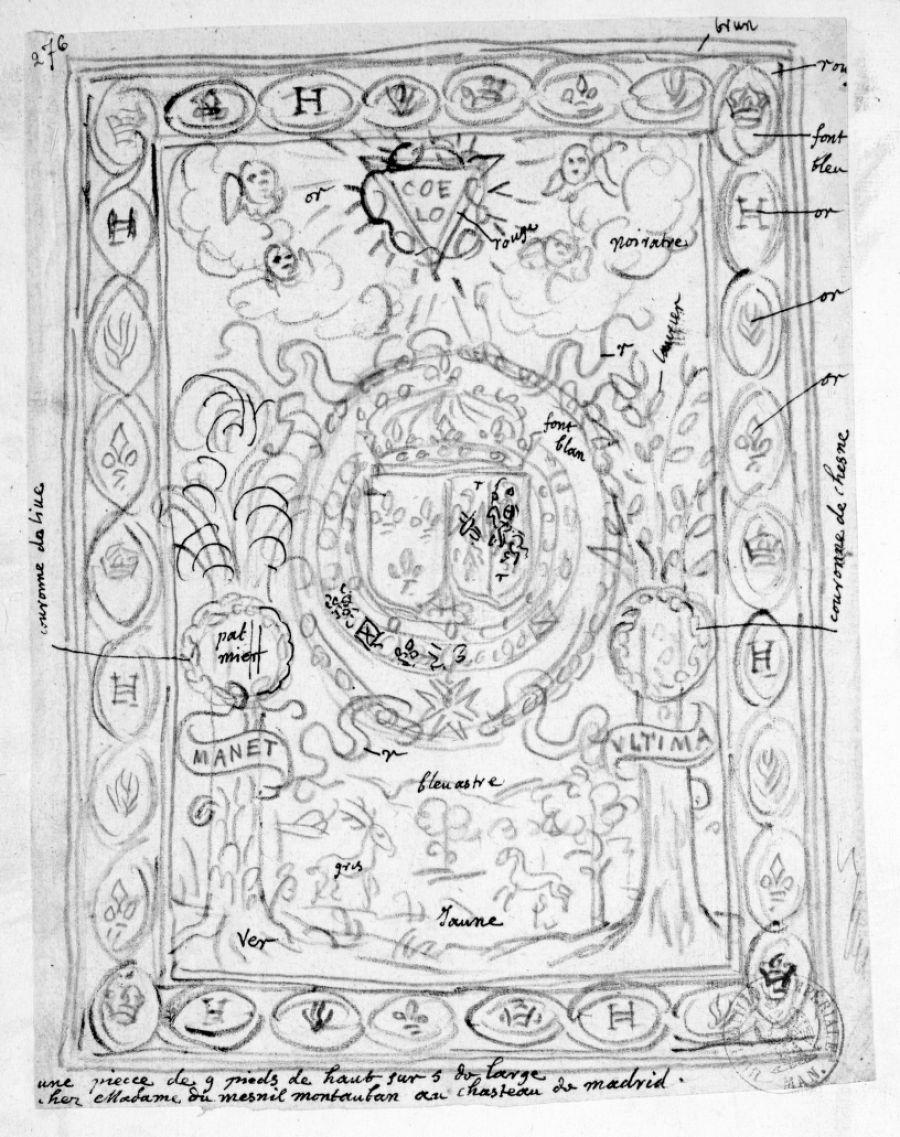 276
brun
rou
H
font
bleu
COE
LO
or
or
rouge
noiratre
H
H
or
or
r
laurier
font
blan
couronne de chesne
pal
mier
couronne dolive
H
H
MANET
VLTIMA
r
bleuastre
gris
Jaune
Ver
H
H
une piecce de 9 pieds de haut sur 5 de large
chez Madame du mesnil montauban au chasteau de madrid.
MAN.